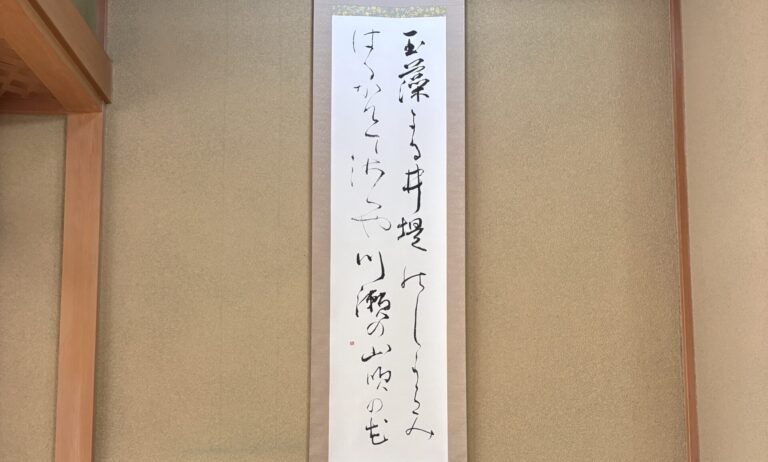 玉藻かる井堤のしからみ
はるかけてさくや川瀬の山吹の花